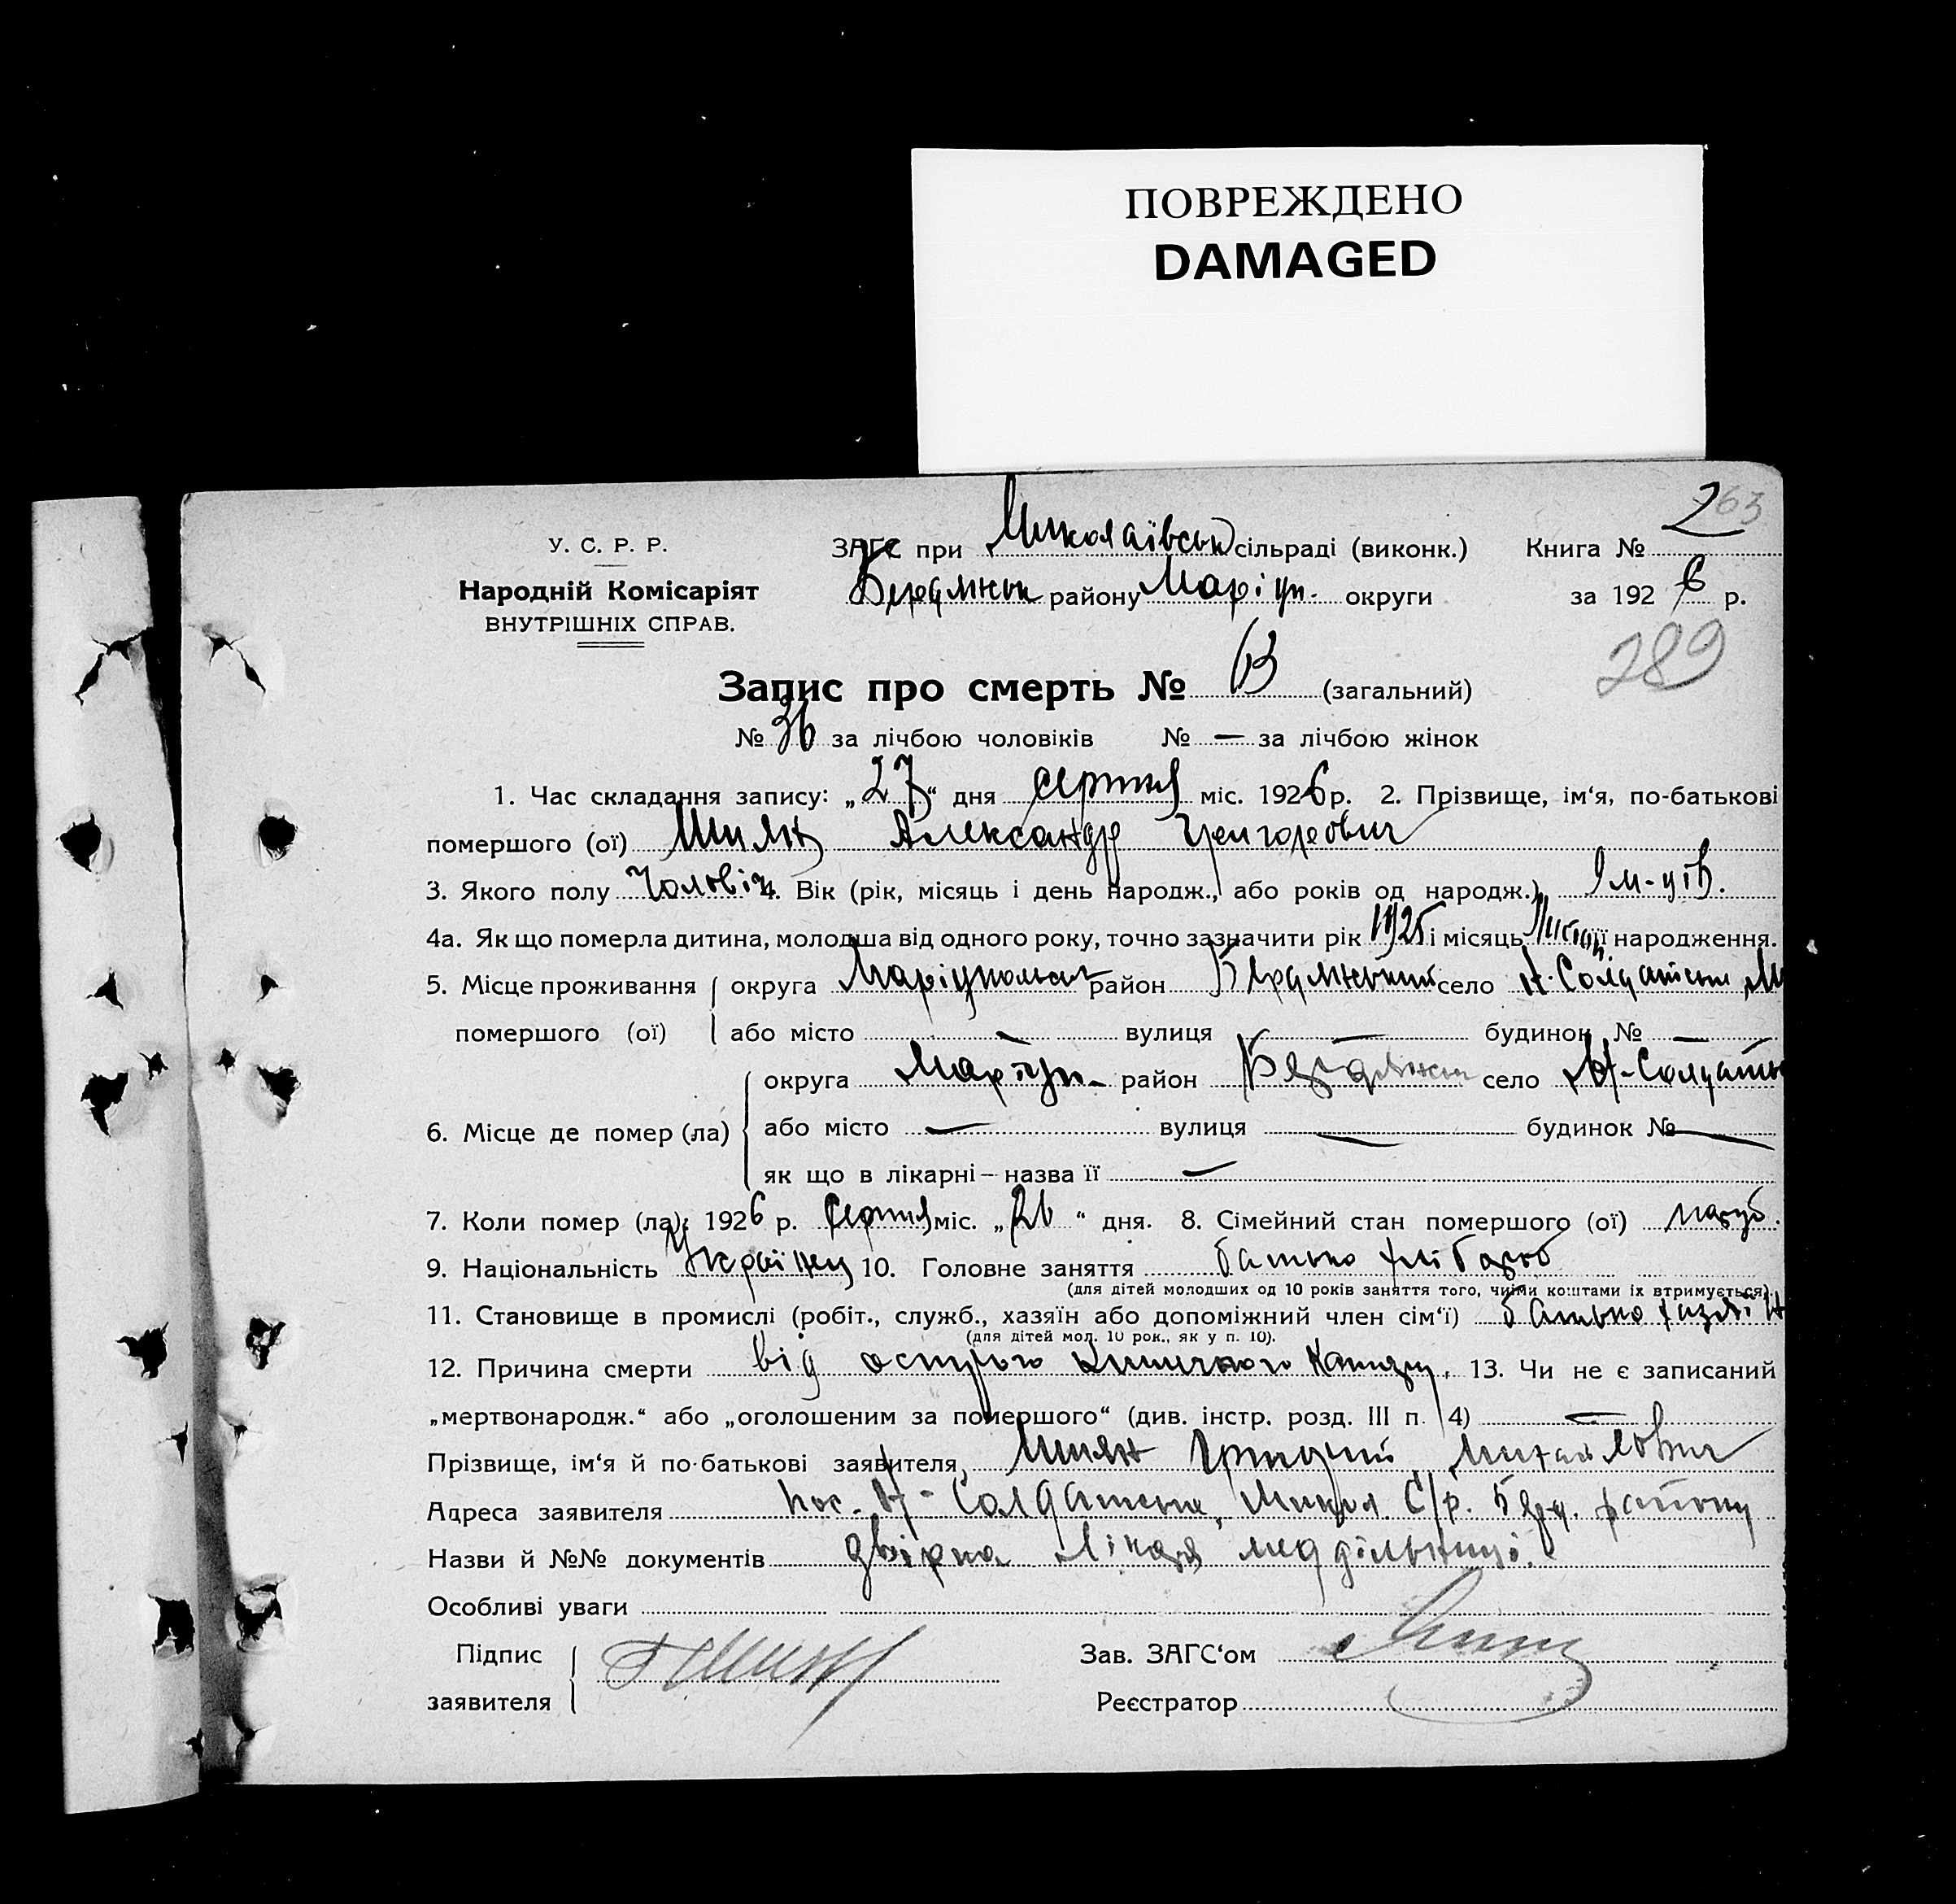 ПОВРЕЖДЕНО
DAMAGED
263
У. С. Р. Р.
Народній Комісаріят
ВНУТРІШНІХ СПРАВ.
ЗАГС при Миколаївськ сільраді (виконк.) Книга №
Бердянськ району Маріуп. округи за 1926 р.
289
Запис про смерть № 63 (загальний)
№ 36 за лічбою чоловіків № — за лічбою жінок
1. Час складання запису: „27“ дня серпня міс. 1926 р. 2. Прізвище, ім‘я, по-батькові
помершого (ої) Шиян Александр Григорович
3. Якого полу Чоловіч. 4. Вік (рік, місяць і день народж., або років од народж.) 9 м-ців.
4а. Як що померла дитина, молодша від одного року, точно зазначити рік 1925 і місяць її народження.
5. Місце проживання округа Маріупольськ район Бердянський село Н-Солдатськ
помершого (ої) або місто — вулиця — будинок № —
6. Місце де помер (ла) округа Маріуп. район Бердянськ село Н-Солдатськ
або місто — вулиця — будинок № —
як що в лікарні — назва її —
7. Коли помер (ла): 1926 р. Серпня міс. „26“ дня. 8. Сімейний стан помершого (ої) паруб.
9. Національність Українец 10. Головне заняття батько хлібороб
(для дітей молодших од 10 років заняття того, чиїми коштами їх втримується).
11. Становище в промислі (робіт., служб., хазяїн або допоміжний член сім‘ї) батько хазяїн
(для дітей мол. 10 рок., як у п. 10).
12. Причина смерти від острого кишичного катару. 13. Чи не є записаний
„мертвонародж.“ або „оголошеним за помершого“ (див. інстр. розд. III п. 4) —
Прізвище, ім‘я й по-батькові заявителя, Шиян Григорий Михайлович
Адреса заявителя пос. Н-Солдатськ, Микол. С/р. Бярд. району
Назви й №№ документів двірка лікаря меддільниці.
Особливі уваги
Підпис
заявителя Г Шиян
Зав. ЗАГС‘ом
Реєстратор